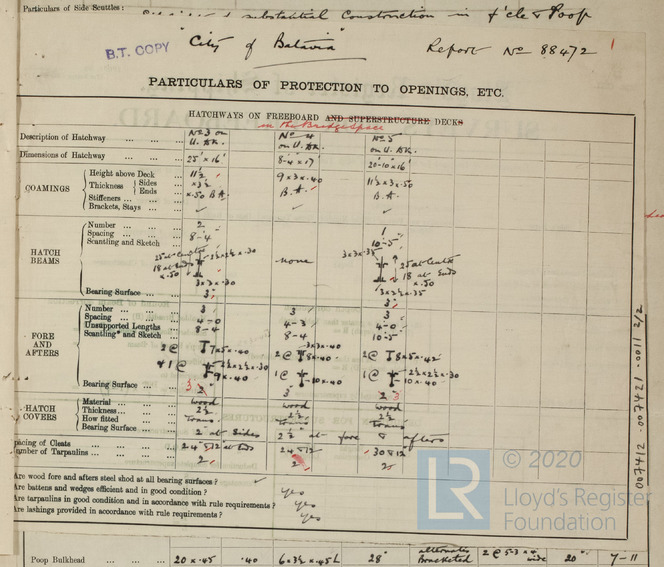 Particulars of Side Scuttles :
substantial Construction in f'cle & Poop
B.T. COPY
"City of Batavia"
Report No 88472
PARTICULARS OF PROTECTION TO OPENINGS, ETC.
HATCHWAYS ON FREEBOARD AND SUPERSTRUCTURE DECKS
in the Bridge space
Description of Hatchway ... ... No 3 on U. Dk. No 4 on U. Dk. No 5 on U. Dk.
Dimensions of Hatchway ... 25' x 16' 8-4 x 17' 20-10 x 16'
COAMINGS
Height above Deck ... 11½ 9 x 3 x .40 11½ x 3 x .50
Thickness Sides x 3½
Ends x .50 B.A. B.A. B.A.
Stiffeners ... ...
Brackets, Stays ... ...
HATCH BEAMS
Number ... ... 2 1
Spacing ... ... 8-4 none 10-5
Scantling and Sketch
25 at centre 3½ x 2½ x .30 3 x 3 x .35 25 at centre
18 at Ends 18 at Ends
x .50 x .50
3 x 3 x .30 3 x 2½ x .35
Bearing Surface ... ... 3" 3"
FORE AND AFTERS
Number ... ... 3 3 3
Spacing ... ... 4-0 4-3 4-0
Unsupported Lengths 8-4 8-4 10-5
Scantling* and Sketch
2 @ 7 x 5 x .40 2 @ 3 x 3 x .40 8 x .40 2 @ 8 x 5 x .42
& 1 @ 2½ x 2½ x .30 9 x .40 1 @ 10 x .40 1 @ 2½ x 2½ x .30 10 x .40
Bearing Surface ... ... 3 2" 3" 2" 3
HATCH COVERS
Material ... ... wood wood wood
Thickness ... ... 2½ 2½ 2½
How fitted ... ... Trans. Trans. Trans.
Bearing Surface ... ... 2" at sides 2½ at fore & afters
Spacing of Cleats ... ... 24" & 12" at Ends 24 & 12" 30 & 12
Number of Tarpaulins ... ... 2 2 2
Are wood fore and afters steel shod at all bearing surfaces ?
Are battens and wedges efficient and in good condition ? yes
Are tarpaulins in good condition and in accordance with rule requirements ? yes
Are lashings provided in accordance with rule requirements ? yes
Poop Bulkhead ... ... 20 x .45 .40 6 x 3½ x .45 L 28" alternates Bracketed 2 @ 5-3 x 4 wide 20" 7-11
007412-007421-0011 2/2
LR
© 2020
Lloyd's Register
Foundation